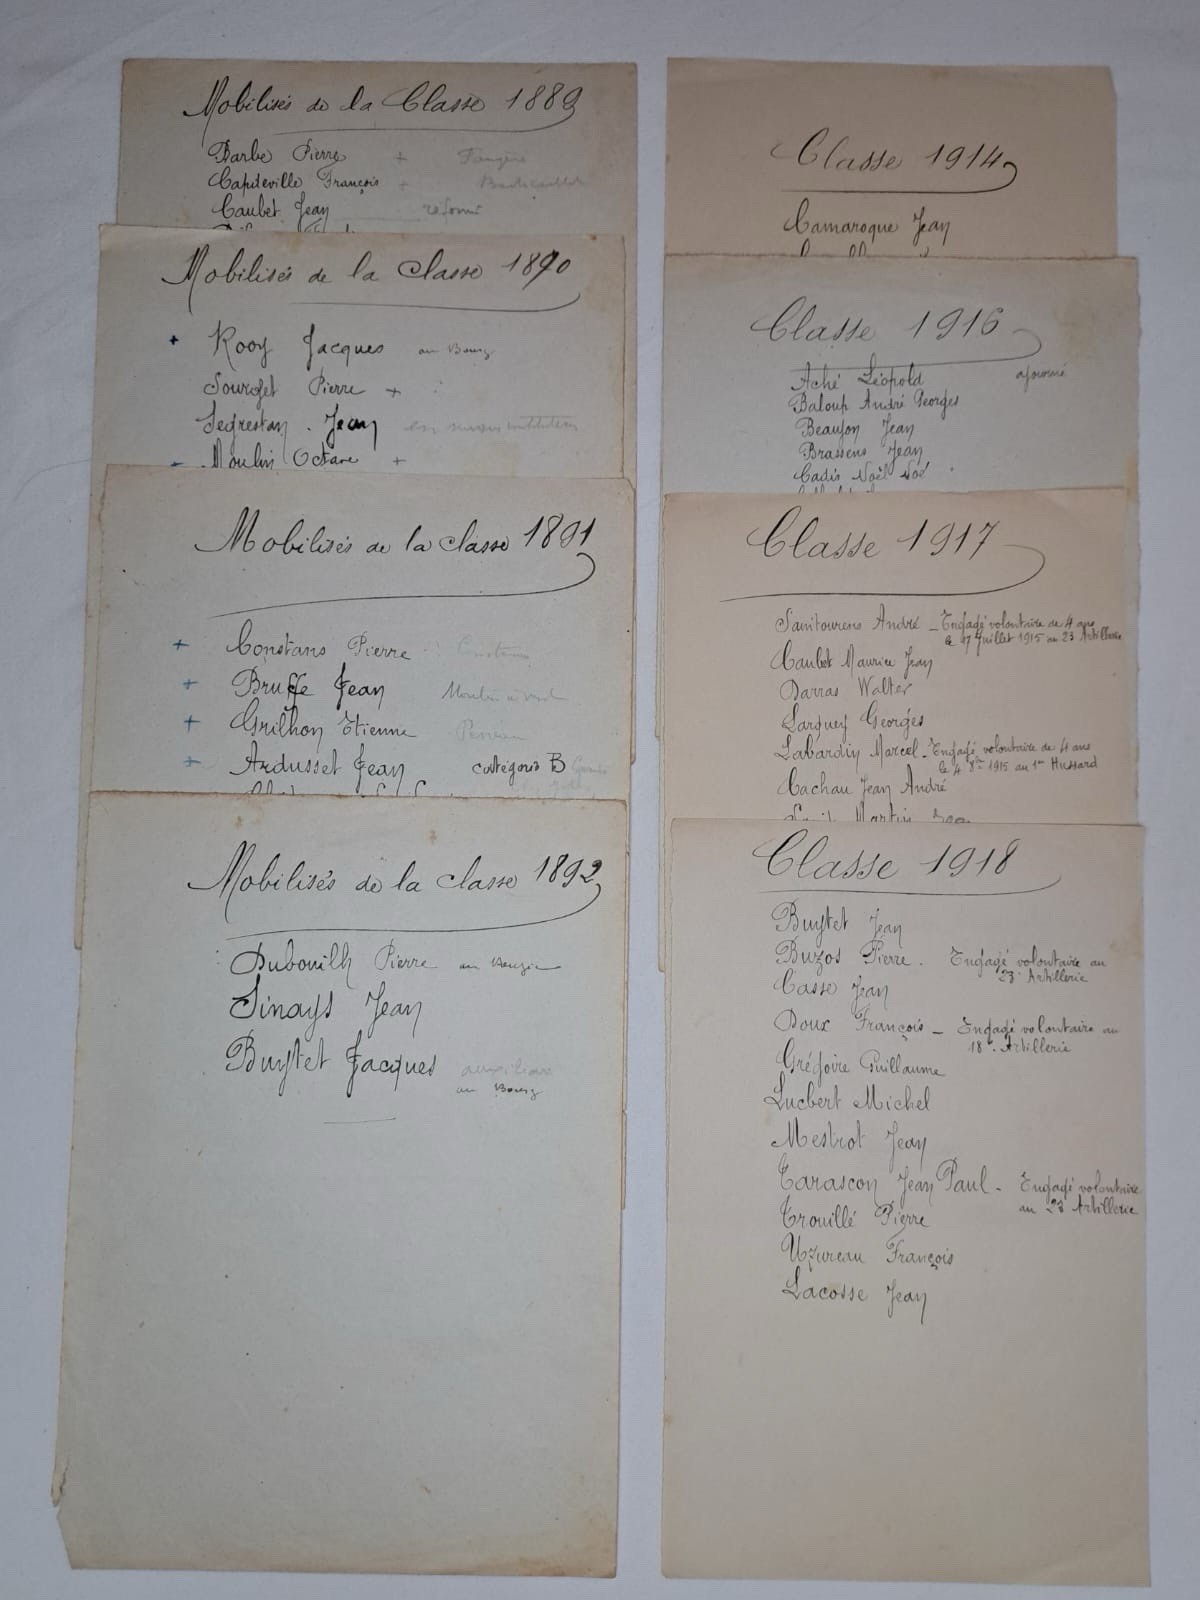 Mobilisés de la Classe 1889
Barbe Pierre +
Capdeville François +
Caubet Jean réformé
Mobilisés de la Classe 1890
+ Rooy Jacques au Bourg
Sourget Pierre +
Segrestan Jean
Moulin Octave +
Mobilisés de la classe 1891
+ Constans Pierre
+ Bruffe Jean Moulin à vent
+ Grilhon Etienne
+ Ardusset Jean catégorie B
Mobilisés de la classe 1892
Dubouilh Pierre
Sinays Jean
Buytet Jacques auxiliaire
au Bourg
Classe 1914
Camaroque Jean
Classe 1916
Aché Léopold ajourné
Baloup André Georges
Beaujon Jean
Brassens Jean
Cadis Noël Noé
Classe 1917
Sanitourens André _ Engagé volontaire de 4 ans
le 17 Juillet 1915 au 23 Artillerie
Caubet Maurice Jean
Darras Walter
Larquey Georges
Labardin Marcel - Engagé volontaire de 4 ans
le 4 8bre 1915 au 1er Hussard
Cachau Jean André
Martin
Classe 1918
Buytet Jean
Buzos Pierre. Engagé volontaire au
23e Artillerie
Casse Jean
Doux François - Engagé volontaire au
18e Artillerie
Grégoire Guillaume
Lucbert Michel
Mestrot Jean
Tarascon Jean Paul - Engagé volontaire
au 23 Artillerie
Trouillé Pierre
Uzureau François
Lacosse Jean